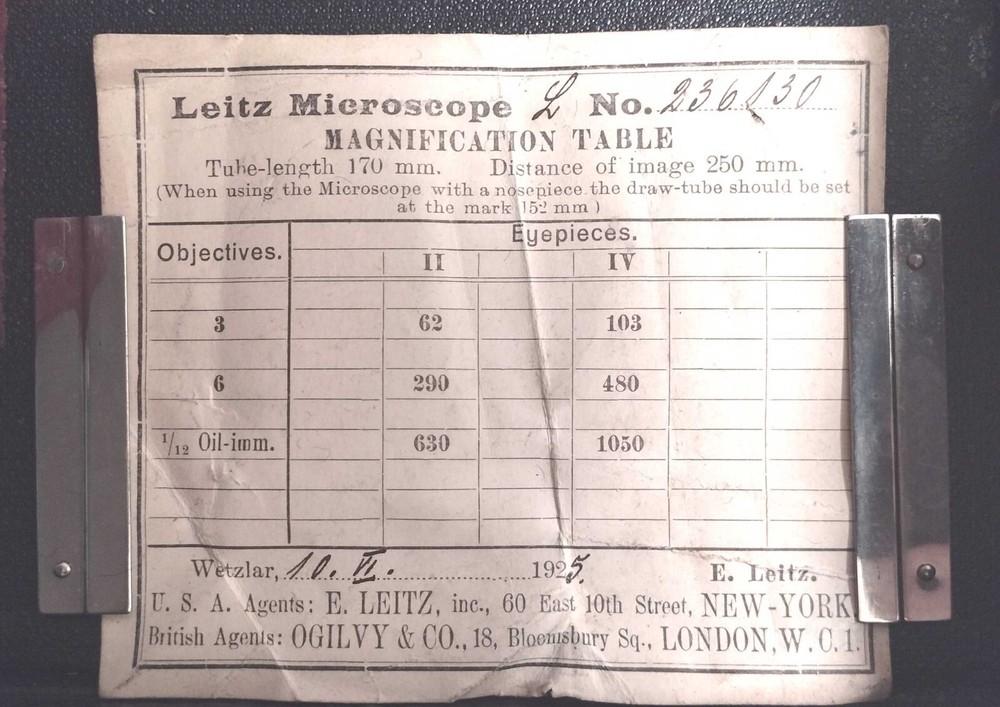 Leitz Microscope L No. 236130
MAGNIFICATION TABLE
Tube-length 170 mm. Distance of image 250 mm.
(When using the Microscope with a nosepiece the draw-tube should be set
at the mark 152 mm)
Objectives. Eyepieces.
II IV
3 62 103
6 290 480
1/12 Oil-imm. 630 1050
Wetzlar, 10. VI. 1925. E. Leitz.
U. S. A. Agents: E. LEITZ, inc., 60 East 10th Street, NEW-YORK
British Agents: OGILVY & CO., 18, Bloomsbury Sq., LONDON, W. C. 1.